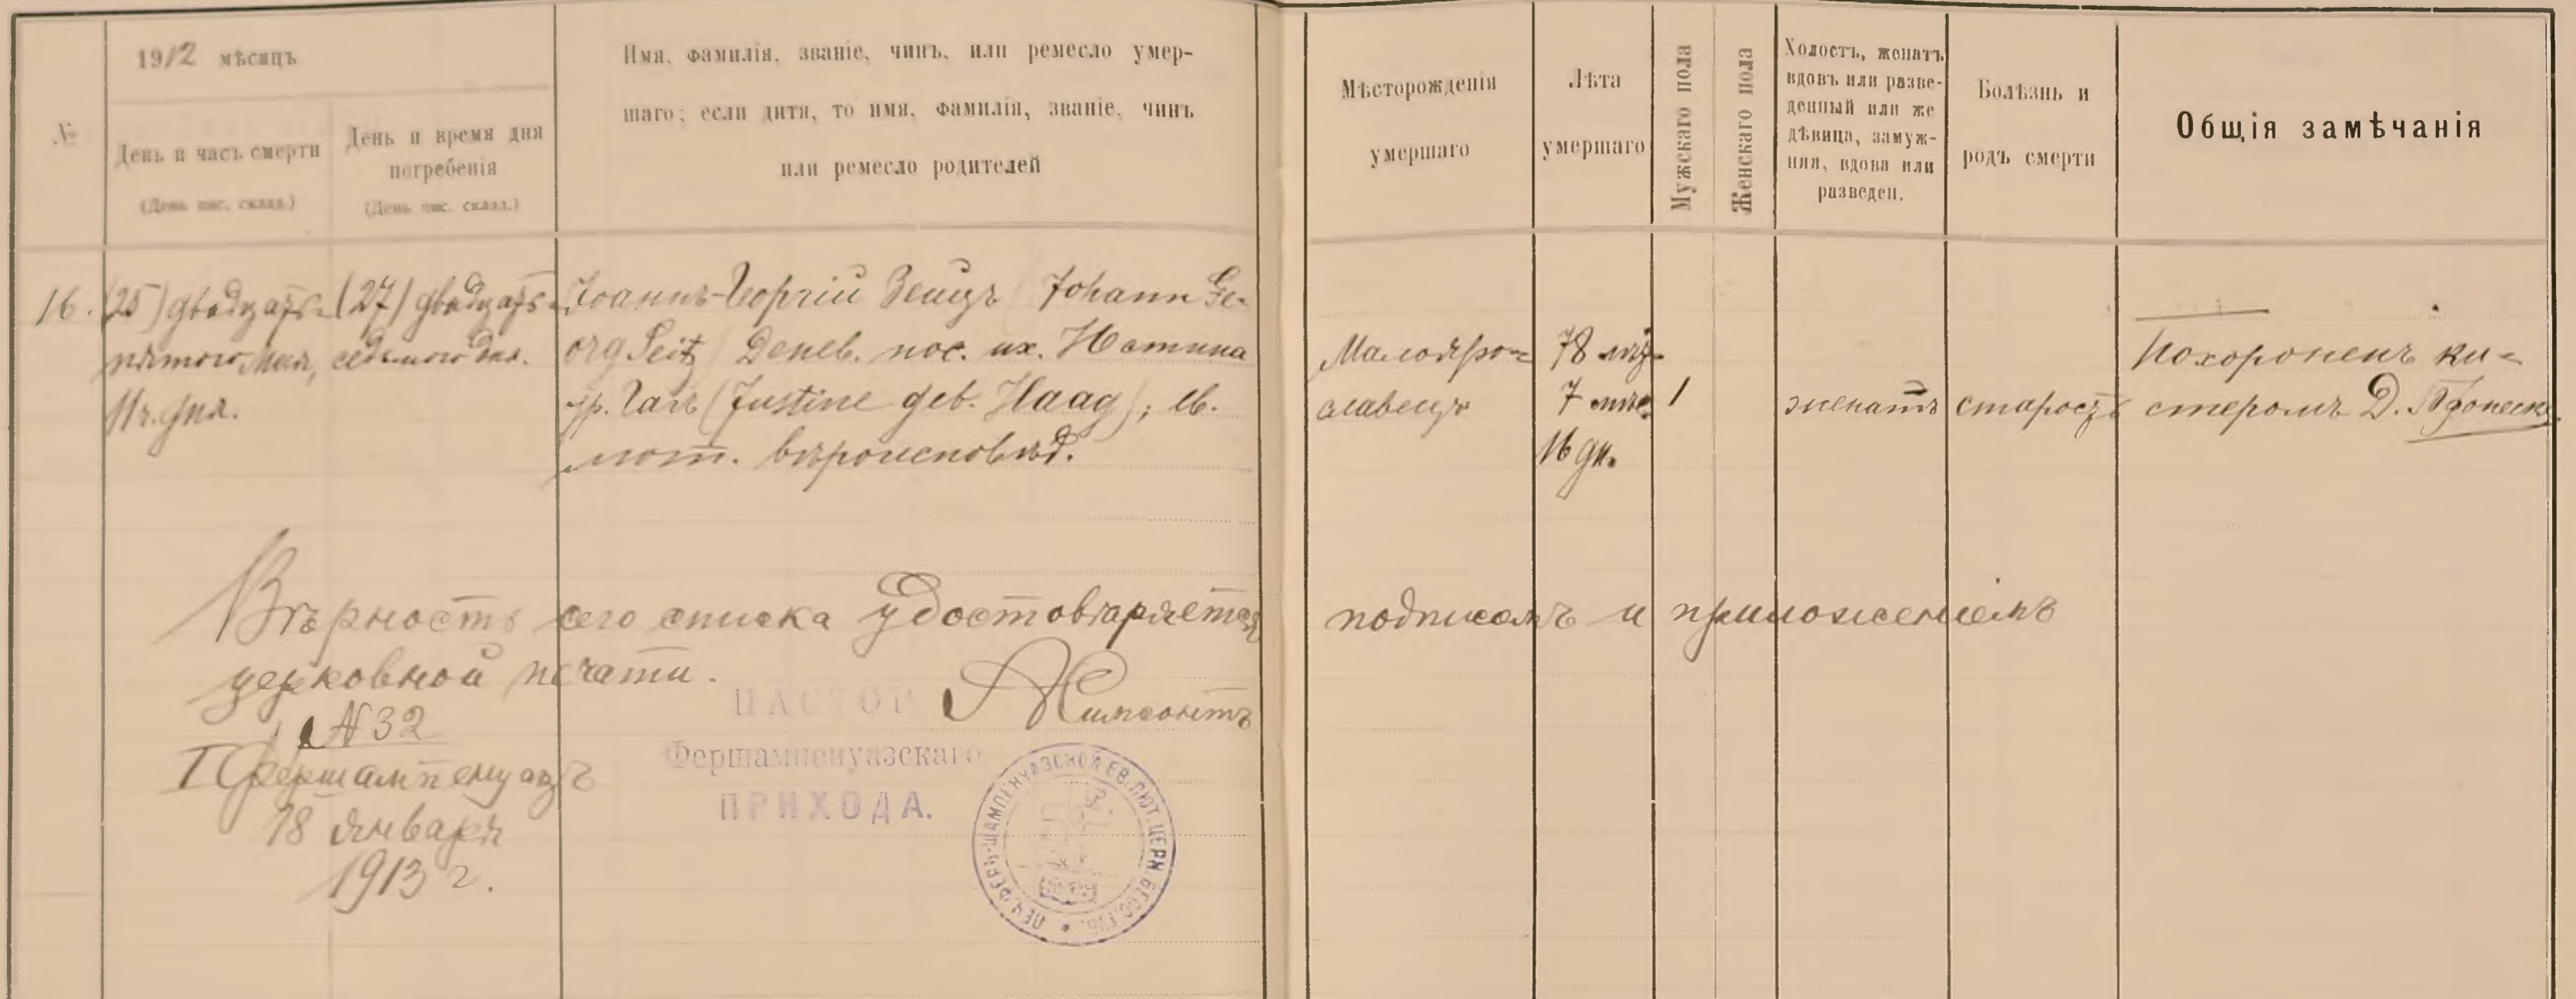 №
1912 мѣсяцъ
День и часъ смерти
(День пис. склад.)
День и время дня
погребенія
(День пис. склад.)
Имя, фамилія, званіе, чинъ, или ремесло умер-
шаго; если дитя, то имя, фамилія, званіе, чинъ
или ремесло родителей
Мѣсторожденія
умершаго
Лѣта
умершаго
Мужскаго пола
Женскаго пола
Холостъ, женатъ
вдовъ или разве-
денный или же
дѣвица, замуж-
няя, вдова или
разведен.
Болѣзнь и
родъ смерти
Общія замѣчанія
16.
(25) двадцать-
пятого мая,
11 ч. дня.
(27) двадцать-
седьмого дня.
Іоаннъ-Георгій Зейцъ (Johann Ge-
org Seitz) Денев. пос. их. Юстина
ур. Гагъ (Justine geb. Haag); ев.
лют. вѣроисповѣд.
Малояро-
славецъ
78 лѣт.
7 мѣс.
16 дн.
1
женатъ
старость
Похороненъ ки-
стеромъ Д.
Вѣрность сего списка удостовѣряется подписомъ и приложеніемъ
церковной печати.
N 32
I Фершампенуазъ
18 января
1913 г.
ПАСТОР
Фершампенуазскаго
ПРИХОДА.
ПЕЧ. ФЕРЪ-ШАМПЕНУАЗСКОЙ ЕВ. ЛЮТ. ЦЕРК. БЕСС. ГУБ.